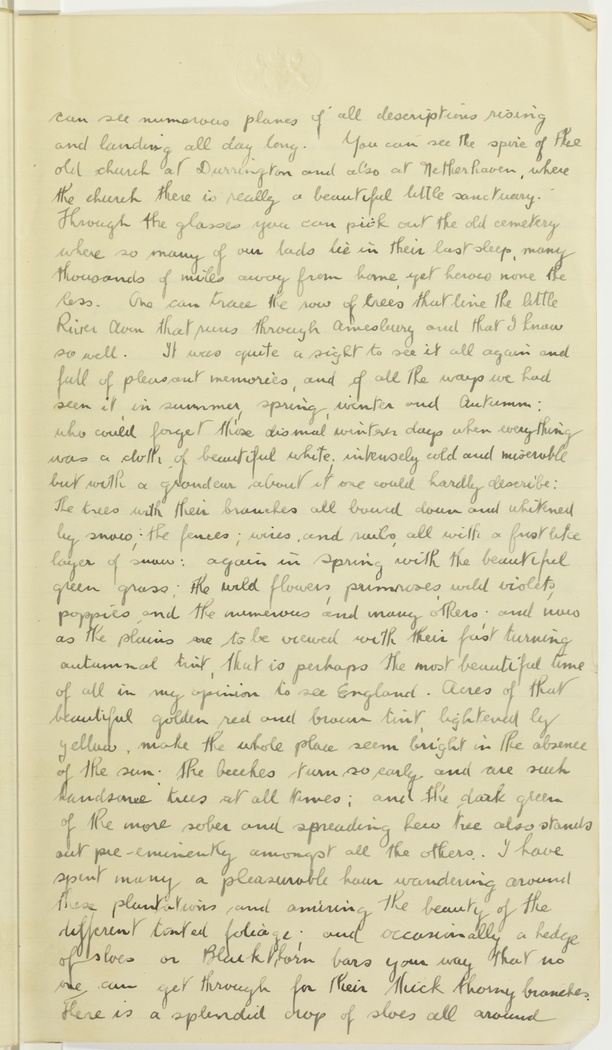 can see numerous planes of all descriptions rising
and landing all day long. You can see the spire of the
old church at Durrington and also at Netherhaven, where
the church there is really a beautiful little sanctuary.
Through the glasses you can pick out the old cemetery
where so many of our lads lie in their last sleep, many
thousands of miles away from home, yet heroes none the
less. One can trace the row of trees that line the little
River Avon that runs through Amesbury and that I know
so well. It was quite a sight to see it all again and
full of pleasant memories, and of all the ways we had
seen it, in summer, spring, winter and Autumn;
who could forget those dismal winter days when everything
was a cloth of beautiful white, intensely cold and miserable
but with a grandeur about it one could hardly describe:
The trees with their branches all bound down and whitened
by snow; the fences; wires, and rails, all with a frost like
layer of snow: again in spring with the beautiful
green grass; the wild flowers, primroses, wild violets,
poppies, and the numerous and many others. and now
as the plains are to be viewed with their fast turning
autumnal tint, that is perhaps the most beautiful time
of all in my opinion to see England. Acres of that
beautiful golden red and brown tint, lightened by
yellow, make the whole place seem bright in the absence
of the sun. The beeches turn so early and are such
handsome trees at all times; and the dark green
of the more sober and spreading hew tree also stands
out pre-eminently amongst all the others. I have
spent many a pleasurable hour wandering around
these plantations and amiring the beauty of the
different tinted foliage; and occasionally a hedge
of sloes or Blackthorn bars your way that no
one can get through for their thick thorny branches.
There is a splendid crop of sloes all around